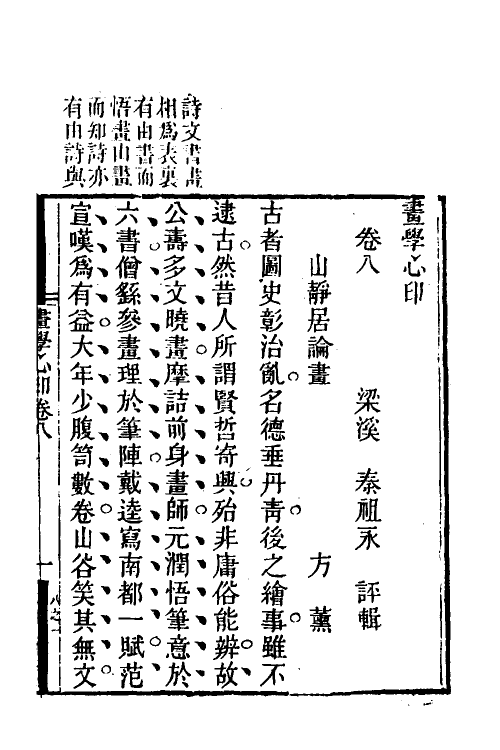 畫學心印
卷八　梁溪　秦祖永　評輯
山靜居論畫　方薰
古者圖史彰治亂名德垂丹靑後之繪事雖不
逮古然昔人所謂賢哲寄興殆非庸俗能辨故
公壽多文曉畫摩詰前身畫師元潤悟筆意於
六書僧繇參畫理於筆陣戴逵寫南都一賦范
宣嘆爲有益大年少腹笥數卷山谷笑其無文
詩文書畫
相爲表裏
有由書而
悟畫山畫
而知詩亦
有由詩與
畫學心印卷八
一